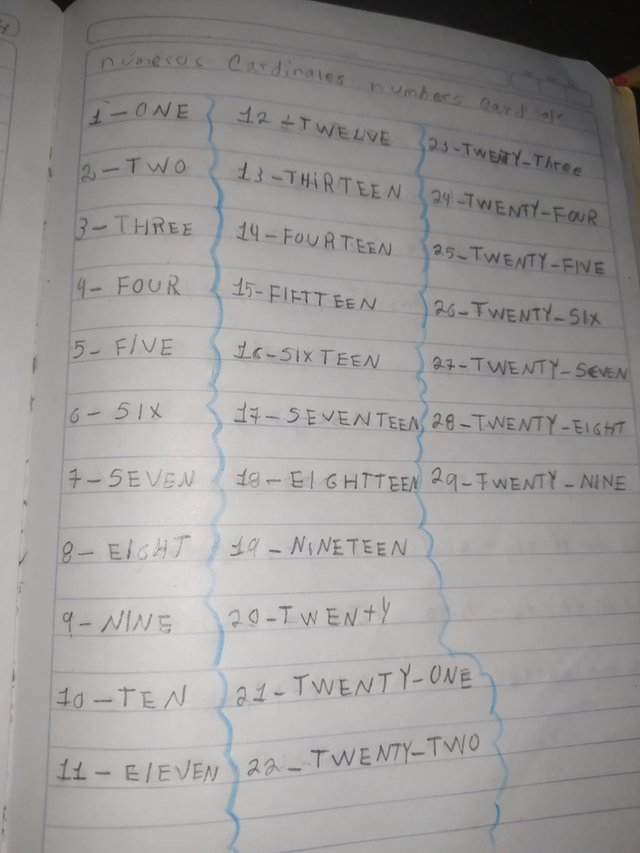 números Cardinales numbers Cardinals
1-ONE
2-TWO
3-THREE
4-FOUR
5-FIVE
6-SIX
7-SEVEN
8-EIGHT
9-NINE
10-TEN
11-ElEVEN
12-TWELVE
13-THiRTEEN
14-FOURTEEN
15-FIFTTEEN
16-SIXTEEN
17-SEVENTEEN
18-EIGHTTEEN
19-NiNETEEN
20-TWENtY
21-TWENTY-ONE
22-TWENTY-TWO
23-TWENTY-Three
24-TWENTY-FOUR
25-TWENTY-FIVE
26-TWENTY-SIX
27-TWENTY-SEVEN
28-TWENTY-EIGHT
29-TWENTY-NINE